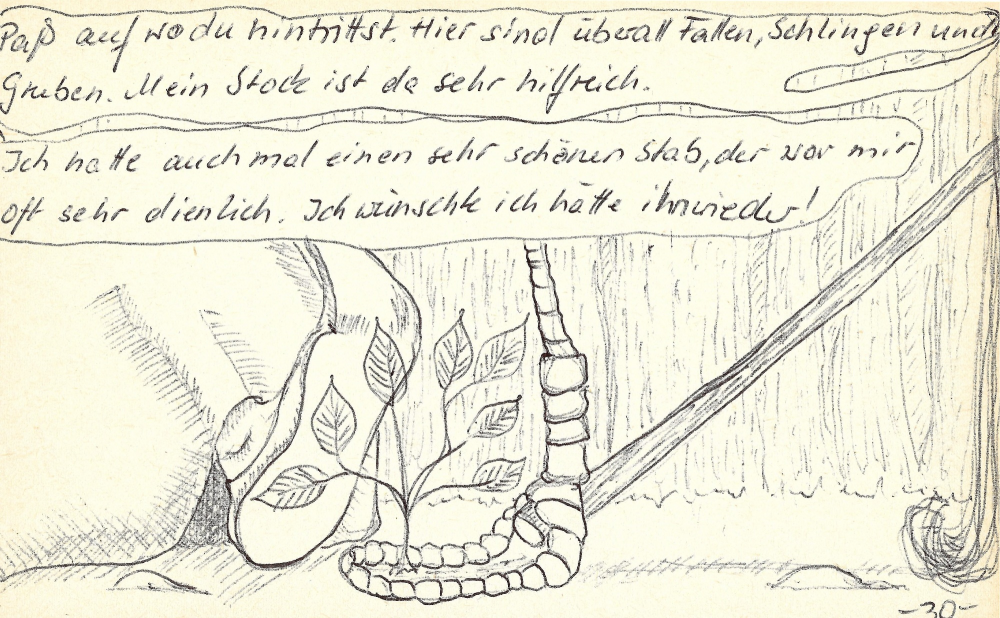 Paß auf wo du hintrittst. Hier sind überall Fallen, Schlingen und
Gruben. Mein Stock ist da sehr hilfreich.
Ich hatte auch mal einen sehr schönen Stab, der war mir
oft sehr dienlich. Ich wünschte ich hätte ihn wieder!
-30-